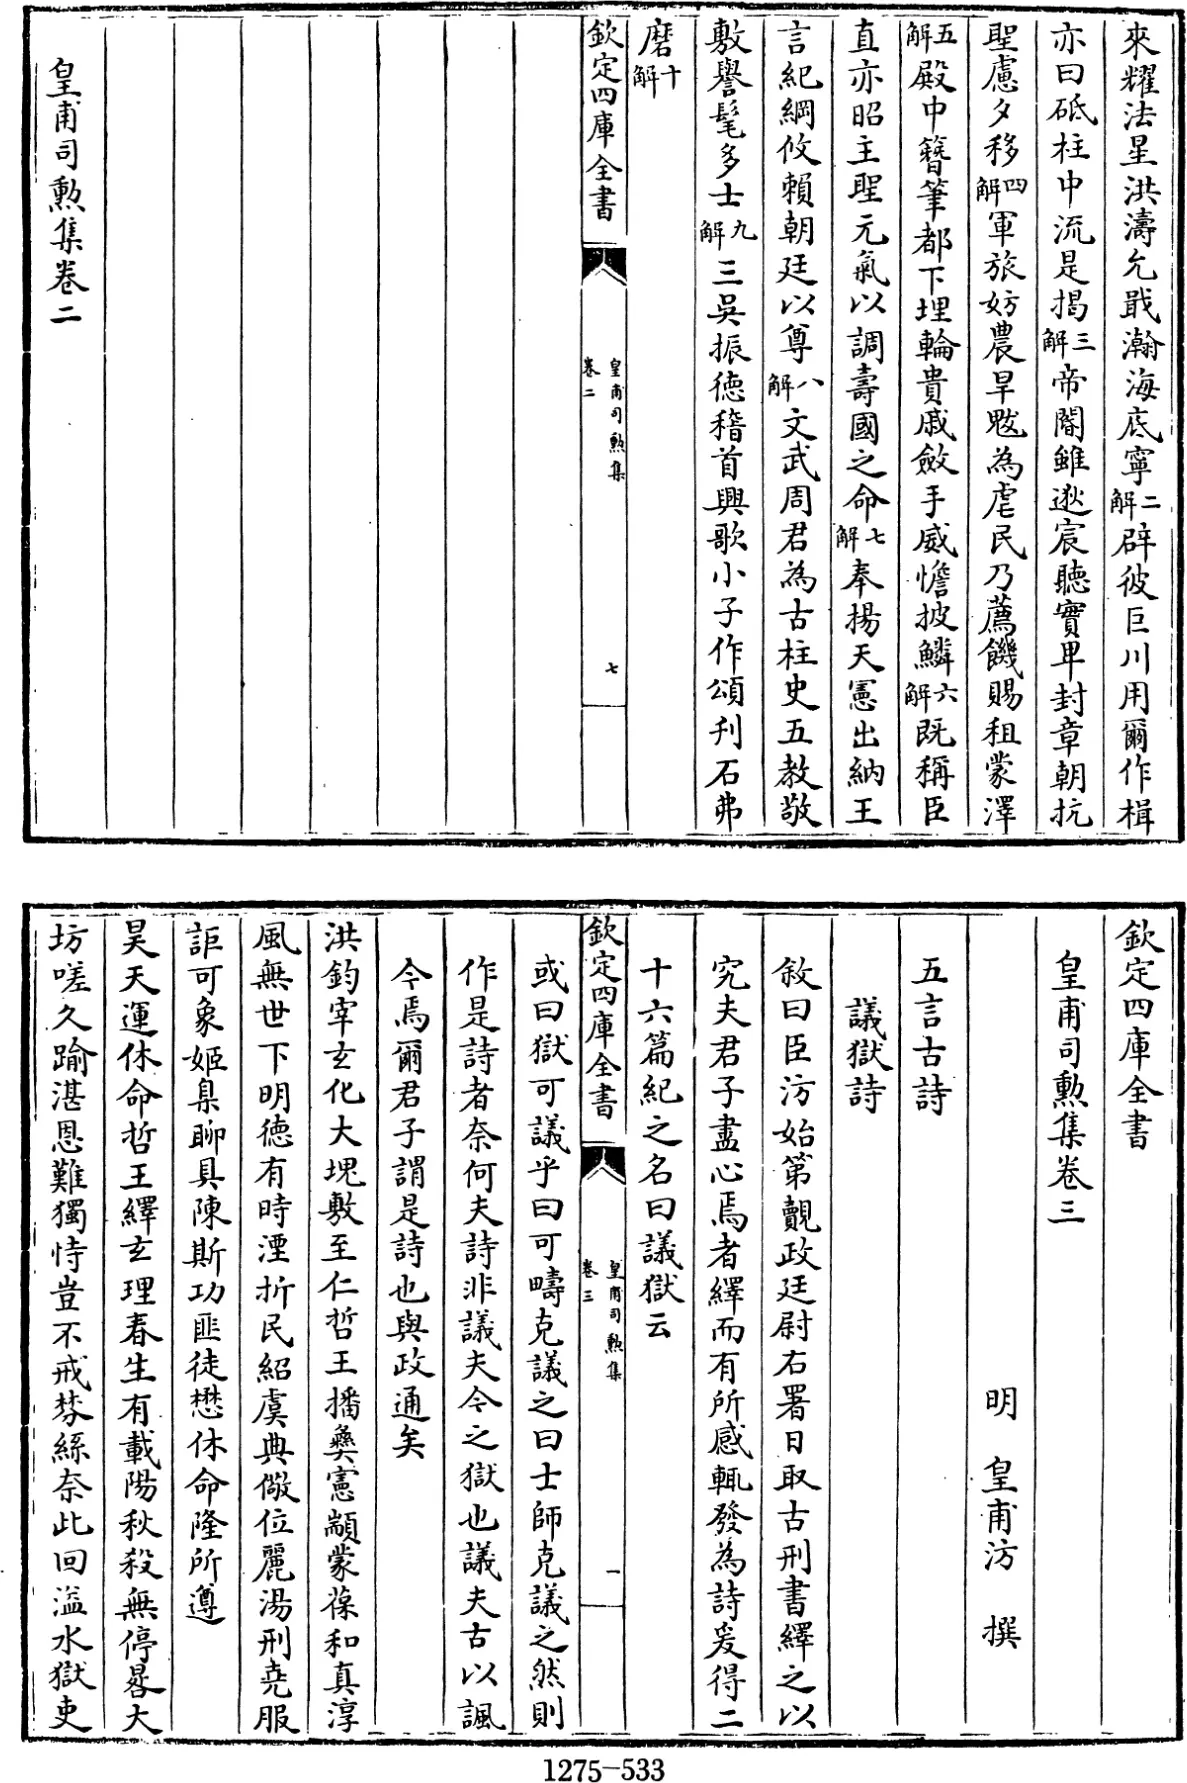 來耀法星洪濤允戢瀚海底寧二解辟彼巨川用爾作楫
亦曰砥柱中流是揭三解帝閽雖逖宸聽實卑封章朝抗
聖慮夕移四解軍旅妨農旱魃為虐民乃薦饑賜租蒙澤
五解殿中簪筆都下埋輪貴戚斂手威憺披鱗六解既稱臣
直亦昭主聖元氣以調壽國之命七解奉揚天憲出納王
言紀綱攸賴朝廷以尊八解文武周君為古柱史五教敬
敷譽髦多士九解三吳振德稽首興歌小子作頌刋石弗
磨十解
欽定四庫全書
皇甫司勲集
卷二
七
皇甫司勲集卷二
欽定四庫全書
皇甫司勲集卷三
明 皇甫汸 撰
五言古詩
議獄詩
敘曰臣汸始第覿政廷尉右署日取古刑書繹之以
究夫君子盡心焉者繹而有所感輒發為詩爰得二
十六篇紀之名曰議獄云
欽定四庫全書
皇甫司勲集
卷三
一
或曰獄可議乎曰可疇克議之曰士師克議之然則
作是詩者奈何夫詩非議夫今之獄也議夫古以諷
今焉爾君子謂是詩也與政通矣
洪鈞宰玄化大塊敷至仁哲王播彝憲顓蒙葆和真淳
風無世下明德有時湮折民紹虞典儆位麗湯刑堯服
詎可象姬臬聊具陳斯功匪徒懋休命隆所遵
昊天運休命哲王繹玄理春生有載陽秋殺無停晷大
坊嗟久踰湛恩難獨恃豈不戒棼絲奈此回溢水獄吏
1275-533